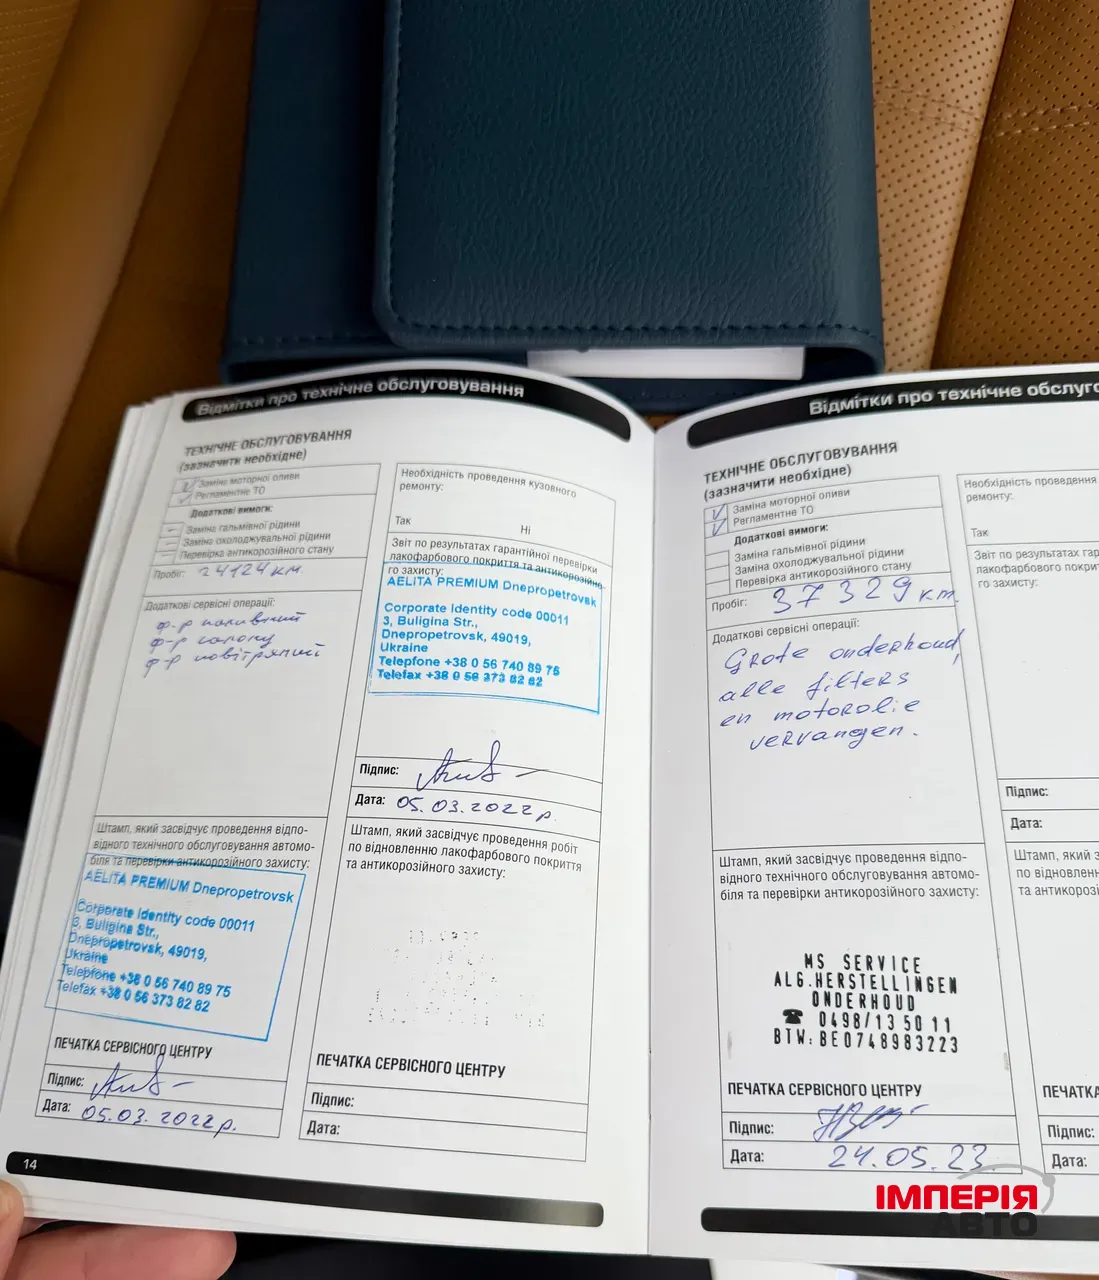 Відмітки про технічне обслуговування
ТЕХНІЧНЕ ОБСЛУГОВУВАННЯ
(зазначити необхідне)
Заміна моторної оливи
Регламентне ТО
Додаткові вимоги:
Заміна гальмівної рідини
Заміна охолоджувальної рідини
Перевірка антикорозійного стану
Пробіг: 24124 км
Додаткові сервісні операції:
ф-р паливний
ф-р салону
ф-р повітряний
Штамп, який засвідчує проведення відпо-
відного технічного обслуговування автомо-
біля та перевірки антикорозійного захисту:
AELITA PREMIUM Dnepropetrovsk
Corporate Identity code 00011
3, Buligina Str.,
Dnepropetrovsk, 49019,
Ukraine
Telepfone +38 0 56 740 89 75
Telefax +38 0 56 373 82 82
ПЕЧАТКА СЕРВІСНОГО ЦЕНТРУ
Підпис:
Дата: 05.03.2022р.
14
Необхідність проведення кузовного
ремонту:
Так Ні
Звіт по результатах гарантійної перевірки
лакофарбового покриття та антикорозійно-
го захисту:
AELITA PREMIUM Dnepropetrovsk
Corporate Identity code 00011
3, Buligina Str.,
Dnepropetrovsk, 49019,
Ukraine
Telepfone +38 0 56 740 89 75
Telefax +38 0 56 373 82 82
Підпис:
Дата: 05.03.2022р.
Штамп, який засвідчує проведення робіт
по відновленню лакофарбового покриття
та антикорозійного захисту:
ПЕЧАТКА СЕРВІСНОГО ЦЕНТРУ
Підпис:
Дата:
Відмітки про технічне обслуго
ТЕХНІЧНЕ ОБСЛУГОВУВАННЯ
(зазначити необхідне)
Заміна моторної оливи
Регламентне ТО
Додаткові вимоги:
Заміна гальмівної рідини
Заміна охолоджувальної рідини
Перевірка антикорозійного стану
Пробіг: 37329 км.
Додаткові сервісні операції:
Grote onderhoud,
alle filters
en motorolie
vervangen.
Штамп, який засвідчує проведення відпо-
відного технічного обслуговування автомо-
біля та перевірки антикорозійного захисту:
MS SERVICE
ALG.HERSTELLINGEN
ONDERHOUD
☎ 0498/13 50 11
BTW: BE0748983223
ПЕЧАТКА СЕРВІСНОГО ЦЕНТРУ
Підпис:
Дата: 24.05.23
Необхідність проведення
ремонту:
Так
Звіт по результатах гар
лакофарбового покрит
го захисту:
Підпис:
Дата:
Штамп, який з
по відновленн
та антикорозі
ПЕЧАТКА
Підпис:
Дата:
ІМПЕРІЯ
АВТО